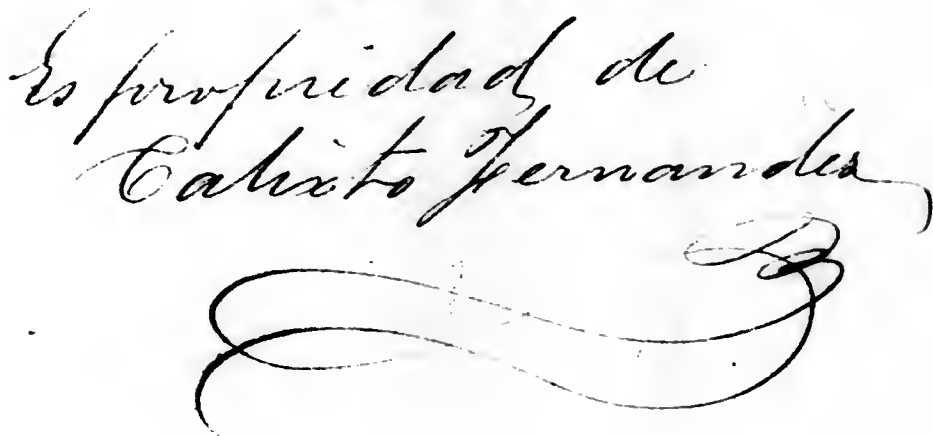 Es propriedad de
Calixto Fernandez